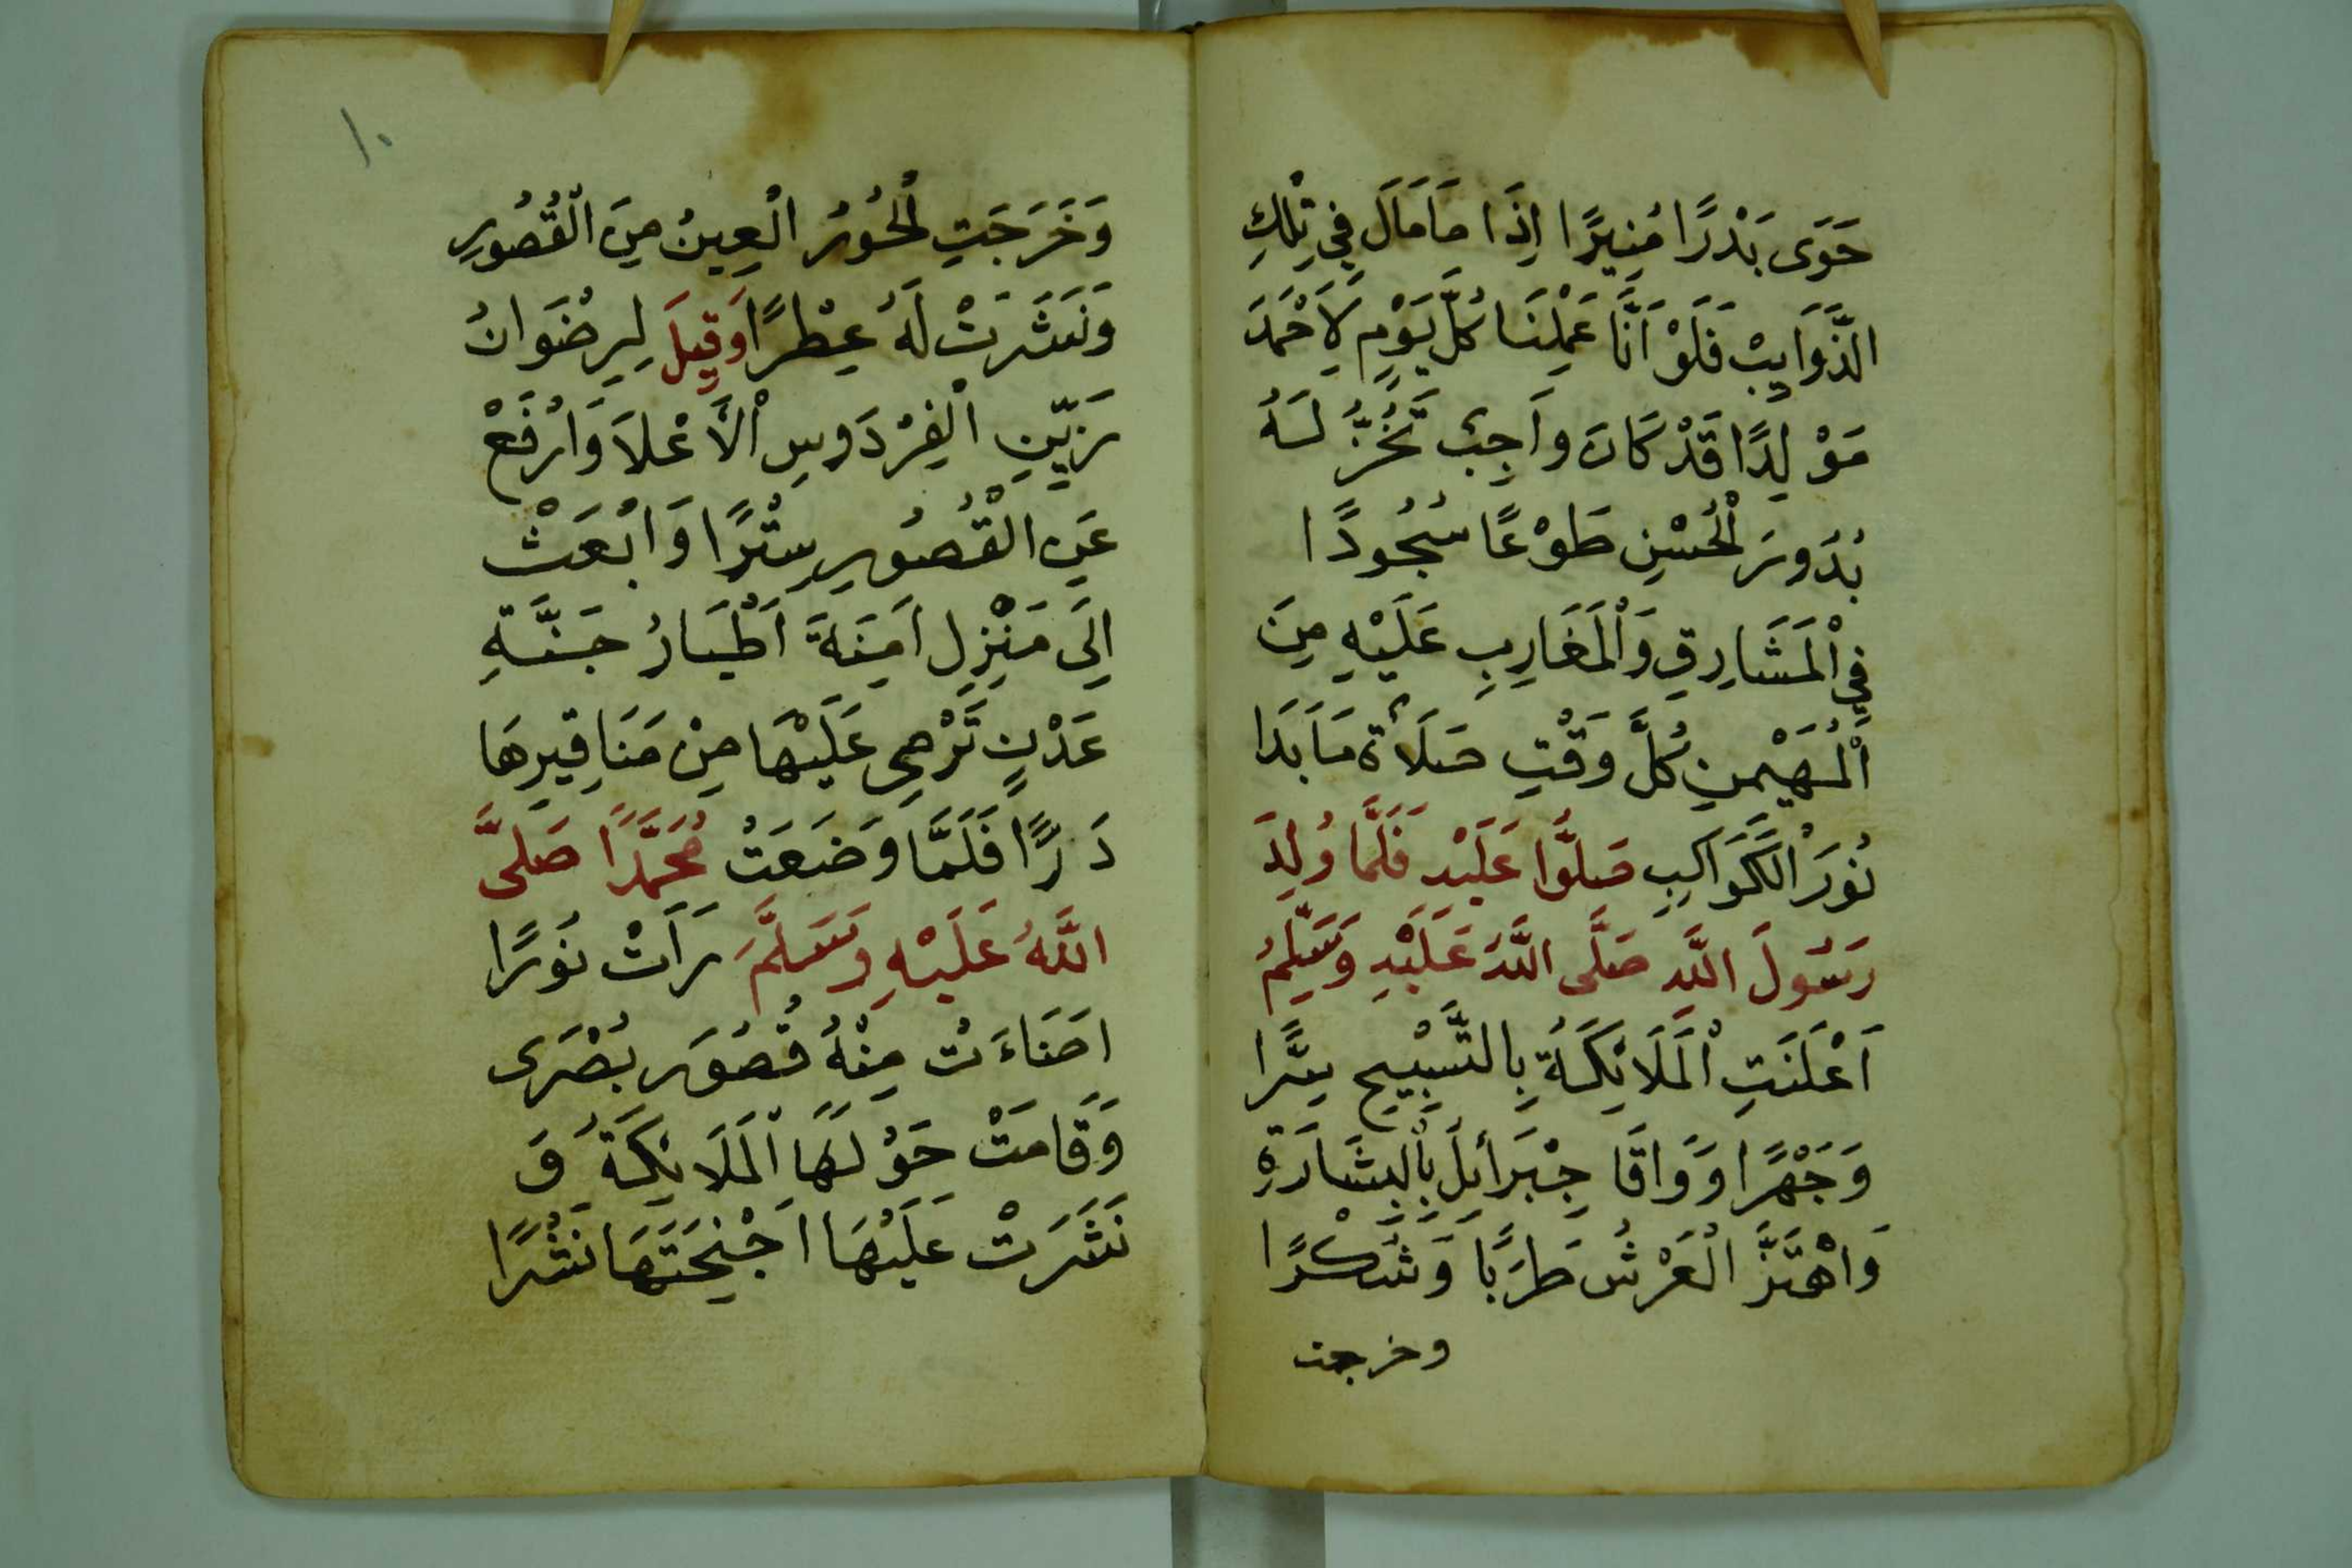 حَوَى بَدْرًا مُنِيرًا اِذَا مَا مَالَ فِي تِلْكِ
الذَّوَايِبْ فَلَوْ اَنَّا عَمِلْنَا كُلَّ يَوْمٍ لِاَحْمَدَ
مَوْلِدًا قَدْ كَانَ وَاَجِبْ تَخُرُّ لَهُ
بُدُورَ الْحُسْنِ طَوْعًا سُجُودًا
فِي الْمَشَارِقِ وَالْمَغَارِبِ عَلَيْهِ مِنَ
الْمُهَيْمِنِ كُلَّ وَقْتٍ صَلَاةٌ مَا بَدَا
نُورَ الْكَوَاكِبِ صَلُّوا عَلَيْهِ فَلَمَّا وُلِدَ
رَسُولَ اللَّهِ صَلَّى اللَّهُ عَلَيْهِ وَسَلِّمُ
اَعْلَنَتِ الْمَلَائِكَةُ بِالتَّسْبِيحِ سِرًّا
وَجَهْرًا وَوَافَا جِبْرَائِلَ بِالْبِشَارَةِ
وَاهْتَزَّ الْعَرْشُ طَرَبًا وَشَكْرًا
وخرجت
١٠
وَخَرَجَتِ الْحُورُ الْعِينُ مِنَ الْقُصُورِ
وَنَثَرَتْ لَهُ عِطْرًا وَقِيلَ لِرِضْوَانُ
زَيِّنِ الْفِرْدَوسِ الْأَعْلَا وَارْفَعْ
عَنِ الْقُصُورِ سِتْرًا وَابْعَثْ
اِلَى مَنْزِلِ اَمِنَةَ اَطْيَارُ جَنَّةِ
عَدْنٍ تَرْمِي عَلَيْهَا مِنْ مَنَاقِيرِهَا
دَرًّا فَلَمَّا وَضَعَتْ مُحَمَّدًا صَلَّى
اللَّهُ عَلَيْهِ وَسَلَّمَ رَاَتْ نُورًا
اضَاءَتْ مِنْهُ قُصُورَ بُصْرَى
وَقَامَتْ حَوْلَهَا الْمَلَائِكَةُ وَ
نَشَرَتْ عَلَيْهَا اَجْنِحَتَهَا نَشْرًا